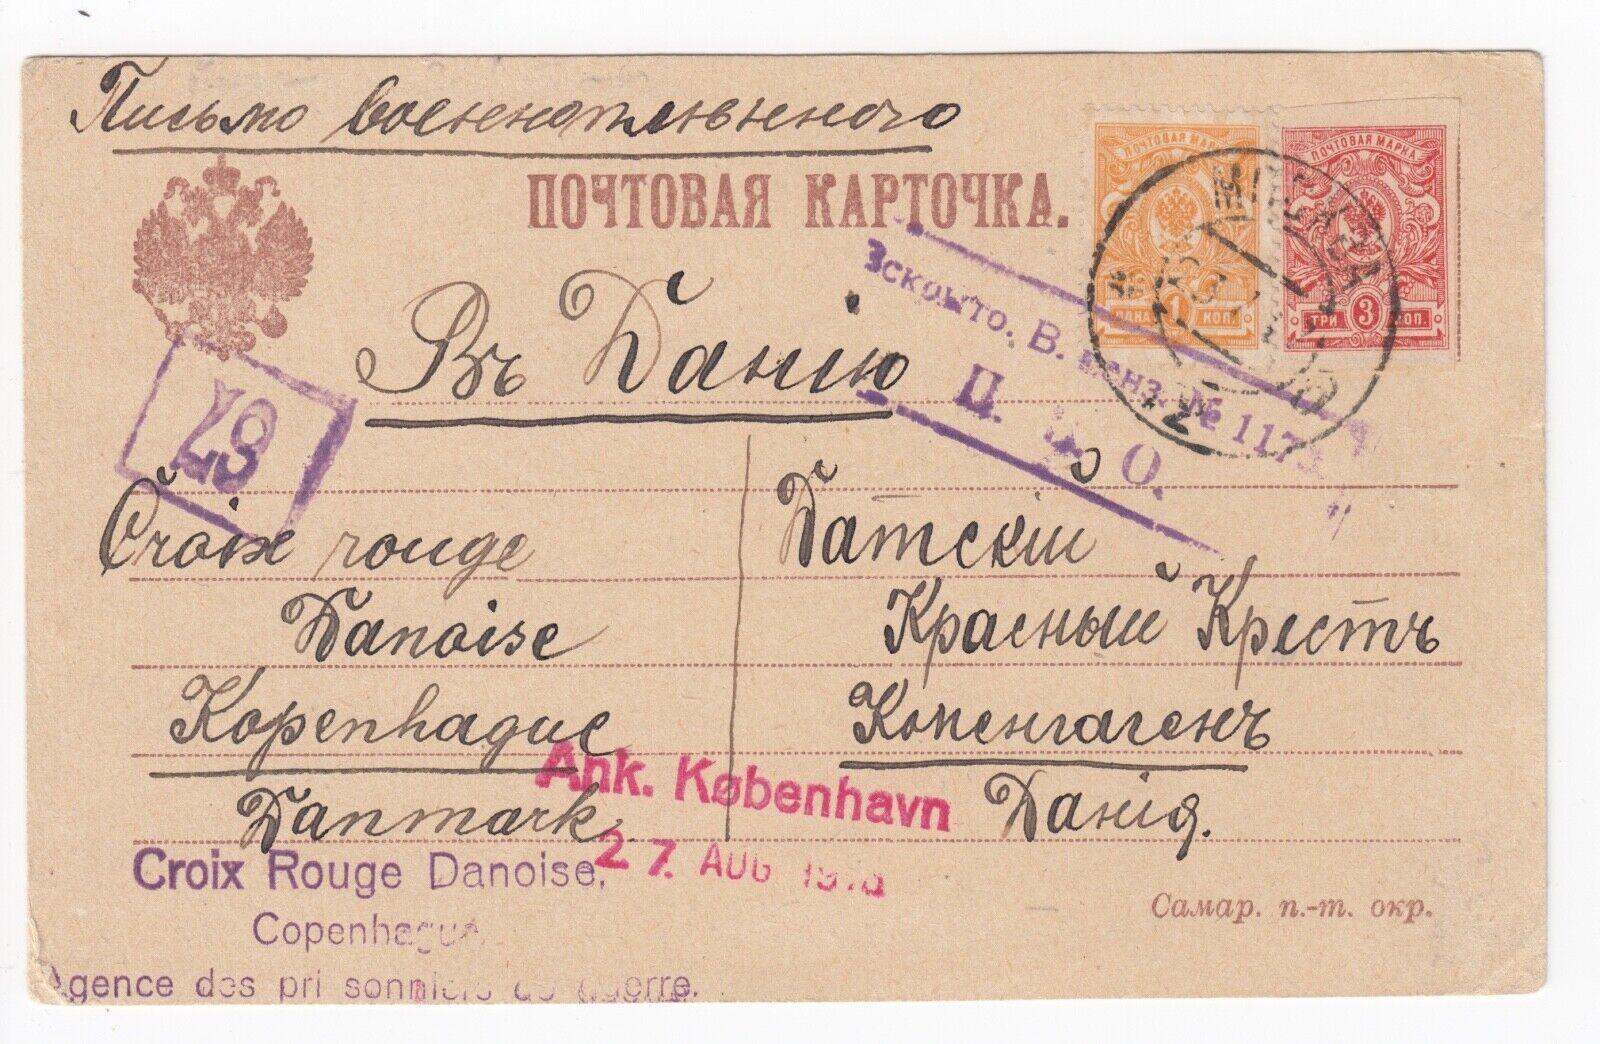 Письмо военноплѣннаго
ПОЧТОВАЯ КАРТОЧКА.
ПОЧТОВАЯ МАРКА
ОДНА 1 КОП.
ПОЧТОВАЯ МАРКА
ТРИ 3 КОП.
Вскрыто. В. ценз. № 1173
Ц. О.
Въ Данію
67
Croix rouge
Danoise
Kopenhague
Danmark
Датскій
Красный Крестъ
Копенгагенъ
Данія.
Ank. København
27. AUG
Croix Rouge Danoise,
Copenhague
Agence des prisonniers de guerre.
Самар. п.-т. окр.